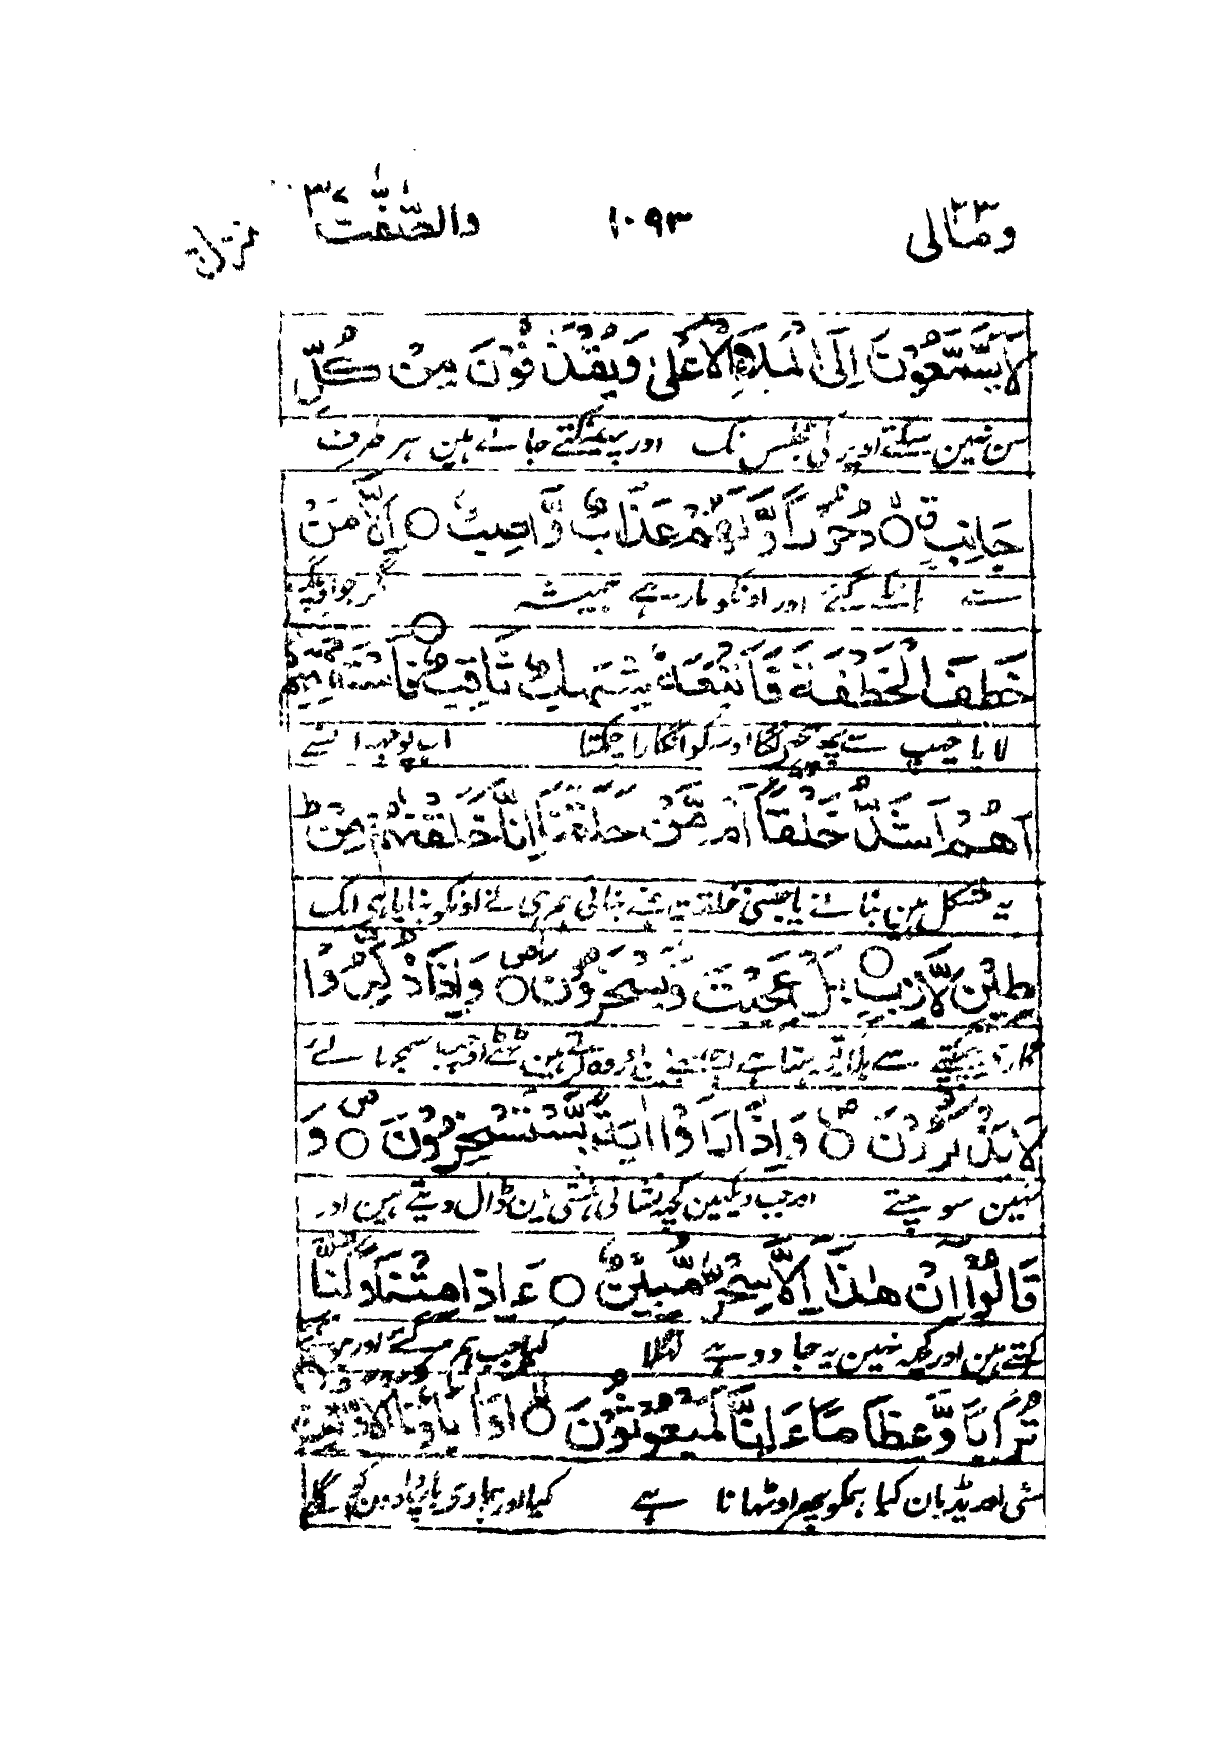 ومالی ٢٣ ١٠٩٣ والصّٰٓفّٰت ٣٧ منزل
لَا يَسَّمَّعُوْنَ اِلَى الْمَلَاِ الْاَعْلٰى وَيُقْذَفُوْنَ مِنْ كُلِّ
سن نہین سکتے اوپر کی مجلس تک اور پھینکتے جاتے ہین ہر طرف
جَانِبٍ ۝ دُحُوْرًا وَّلَهُمْ عَذَابٌ وَّاصِبٌ ۝ اِلَّا مَنْ
سے اور اونکو مار ہے ہمیشہ مگر جو
خَطِفَ الْخَطْفَةَ فَاَتْبَعَهٗ شِهَابٌ ثَاقِبٌ ۝ فَاسْتَفْتِهِمْ
لایا جھپ سے پیچھے لگا اوسکو انگارا چمکتا اب پوچھ اونسے
اَهُمْ اَشَدُّ خَلْقًا اَمْ مَّنْ خَلَقْنَا اِنَّا خَلَقْنٰهُمْ مِّنْ
یہ مشکل ہین بنانے یا جتنی خلقت ہمنے بنائی ہم ہی نے اونکو بنایا ہی ایک
طِيْنٍ لَّازِبٍ ۝ بَلْ عَجِبْتَ وَيَسْخَرُوْنَ ۝ وَاِذَا ذُكِّرُوْا
گارے چپکتے سے بلکہ تو اور وہ کرتے ہین ٹھٹھے اور جب سمجھائے
لَا يَذْكُرُوْنَ ۝ وَاِذَا رَاَوْا اٰيَةً يَّسْتَسْخِرُوْنَ ۝ وَ
نہین سوچتے اور جب دیکھین کچھ نشانی ہنسی مین ڈال دیتے ہین اور
قَالُوْٓا اِنْ هٰذَآ اِلَّا سِحْرٌ مُّبِيْنٌ ۝ ءَاِذَا مِتْنَا وَكُنَّا
کہتے ہین اور کچھ نہین یہ جادو ہے کھلا کیا جب ہم مر گئے اور ہو گئے
تُرَابًا وَّعِظَامًا ءَاِنَّا لَمَبْعُوْثُوْنَ ۝ اَوَاٰبَآؤُنَا الْاَوَّلُوْنَ
مٹی اور ہڈیان کیا ہمکو پھر اوٹھانا ہے کیا اور ہماری باپ دادون کو اگلے